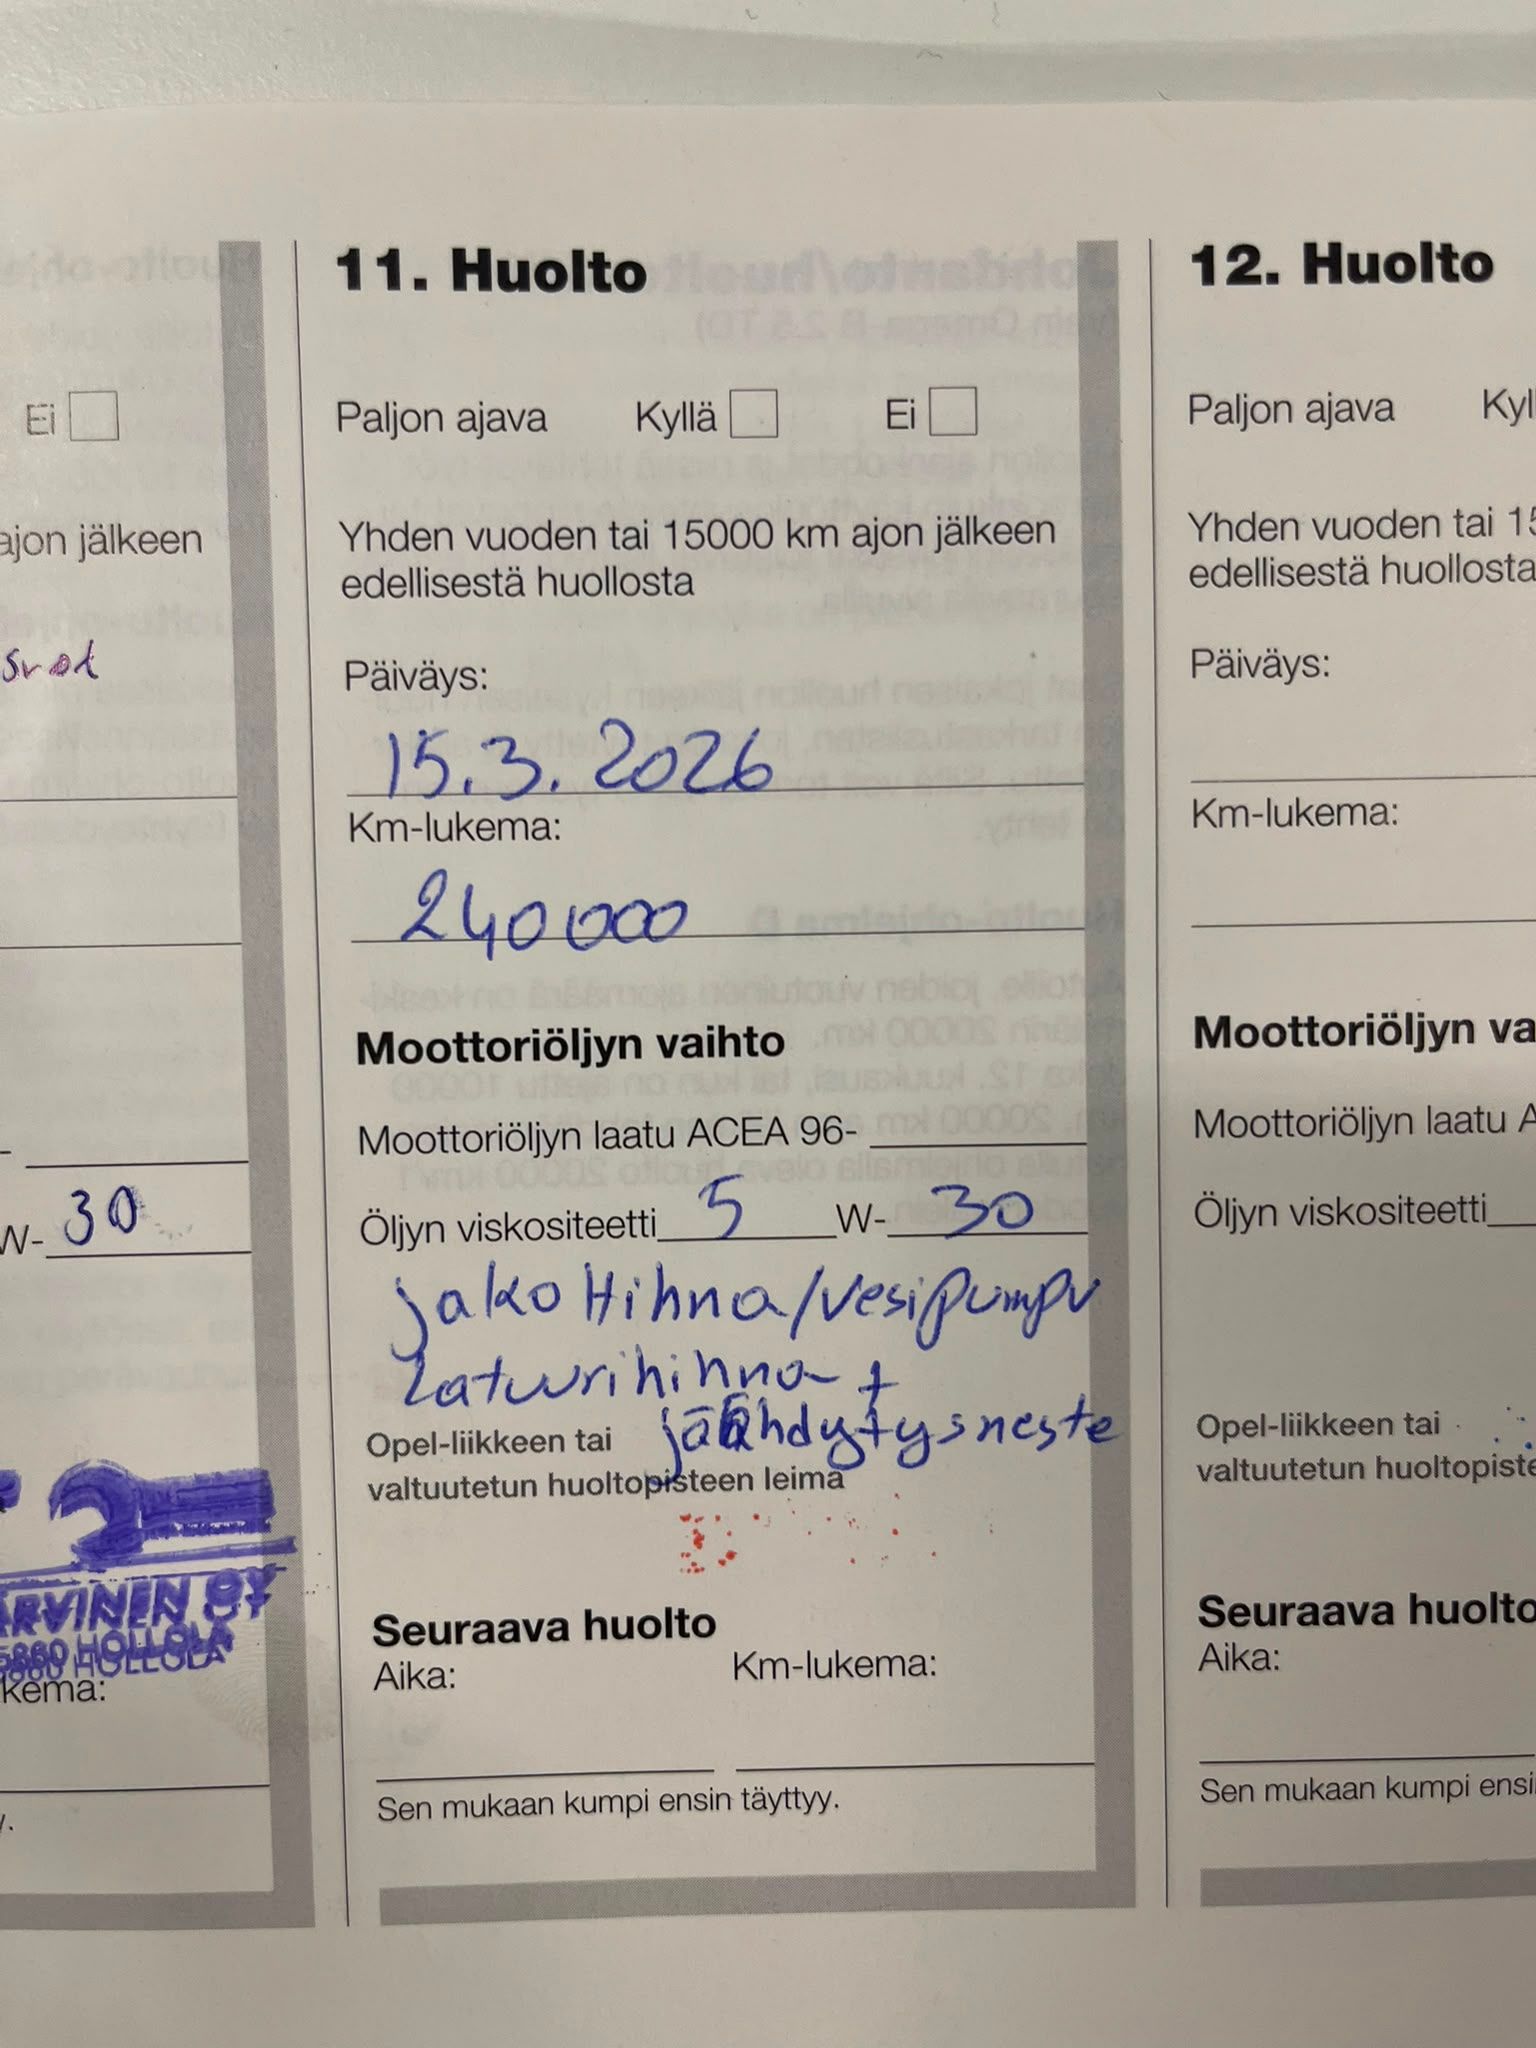 Ei
ajon jälkeen
W- 30
ARVINEN OY
HOLLOLA
kema:
11. Huolto
Paljon ajava Kyllä Ei
Yhden vuoden tai 15000 km ajon jälkeen
edellisestä huollosta
Päiväys:
15.3.2026
Km-lukema:
240000
Moottoriöljyn vaihto
Moottoriöljyn laatu ACEA 96-
Öljyn viskositeetti 5 W- 30
jakoHihna/vesipumpu
Laturihihna +
jäähdytysneste
Opel-liikkeen tai
valtuutetun huoltopisteen leima
Seuraava huolto
Aika: Km-lukema:
Sen mukaan kumpi ensin täyttyy.
12. Huolto
Paljon ajava Kyl
Yhden vuoden tai 15
edellisestä huollosta
Päiväys:
Km-lukema:
Moottoriöljyn va
Moottoriöljyn laatu A
Öljyn viskositeetti
Opel-liikkeen tai
valtuutetun huoltopiste
Seuraava huolto
Aika:
Sen mukaan kumpi ensi